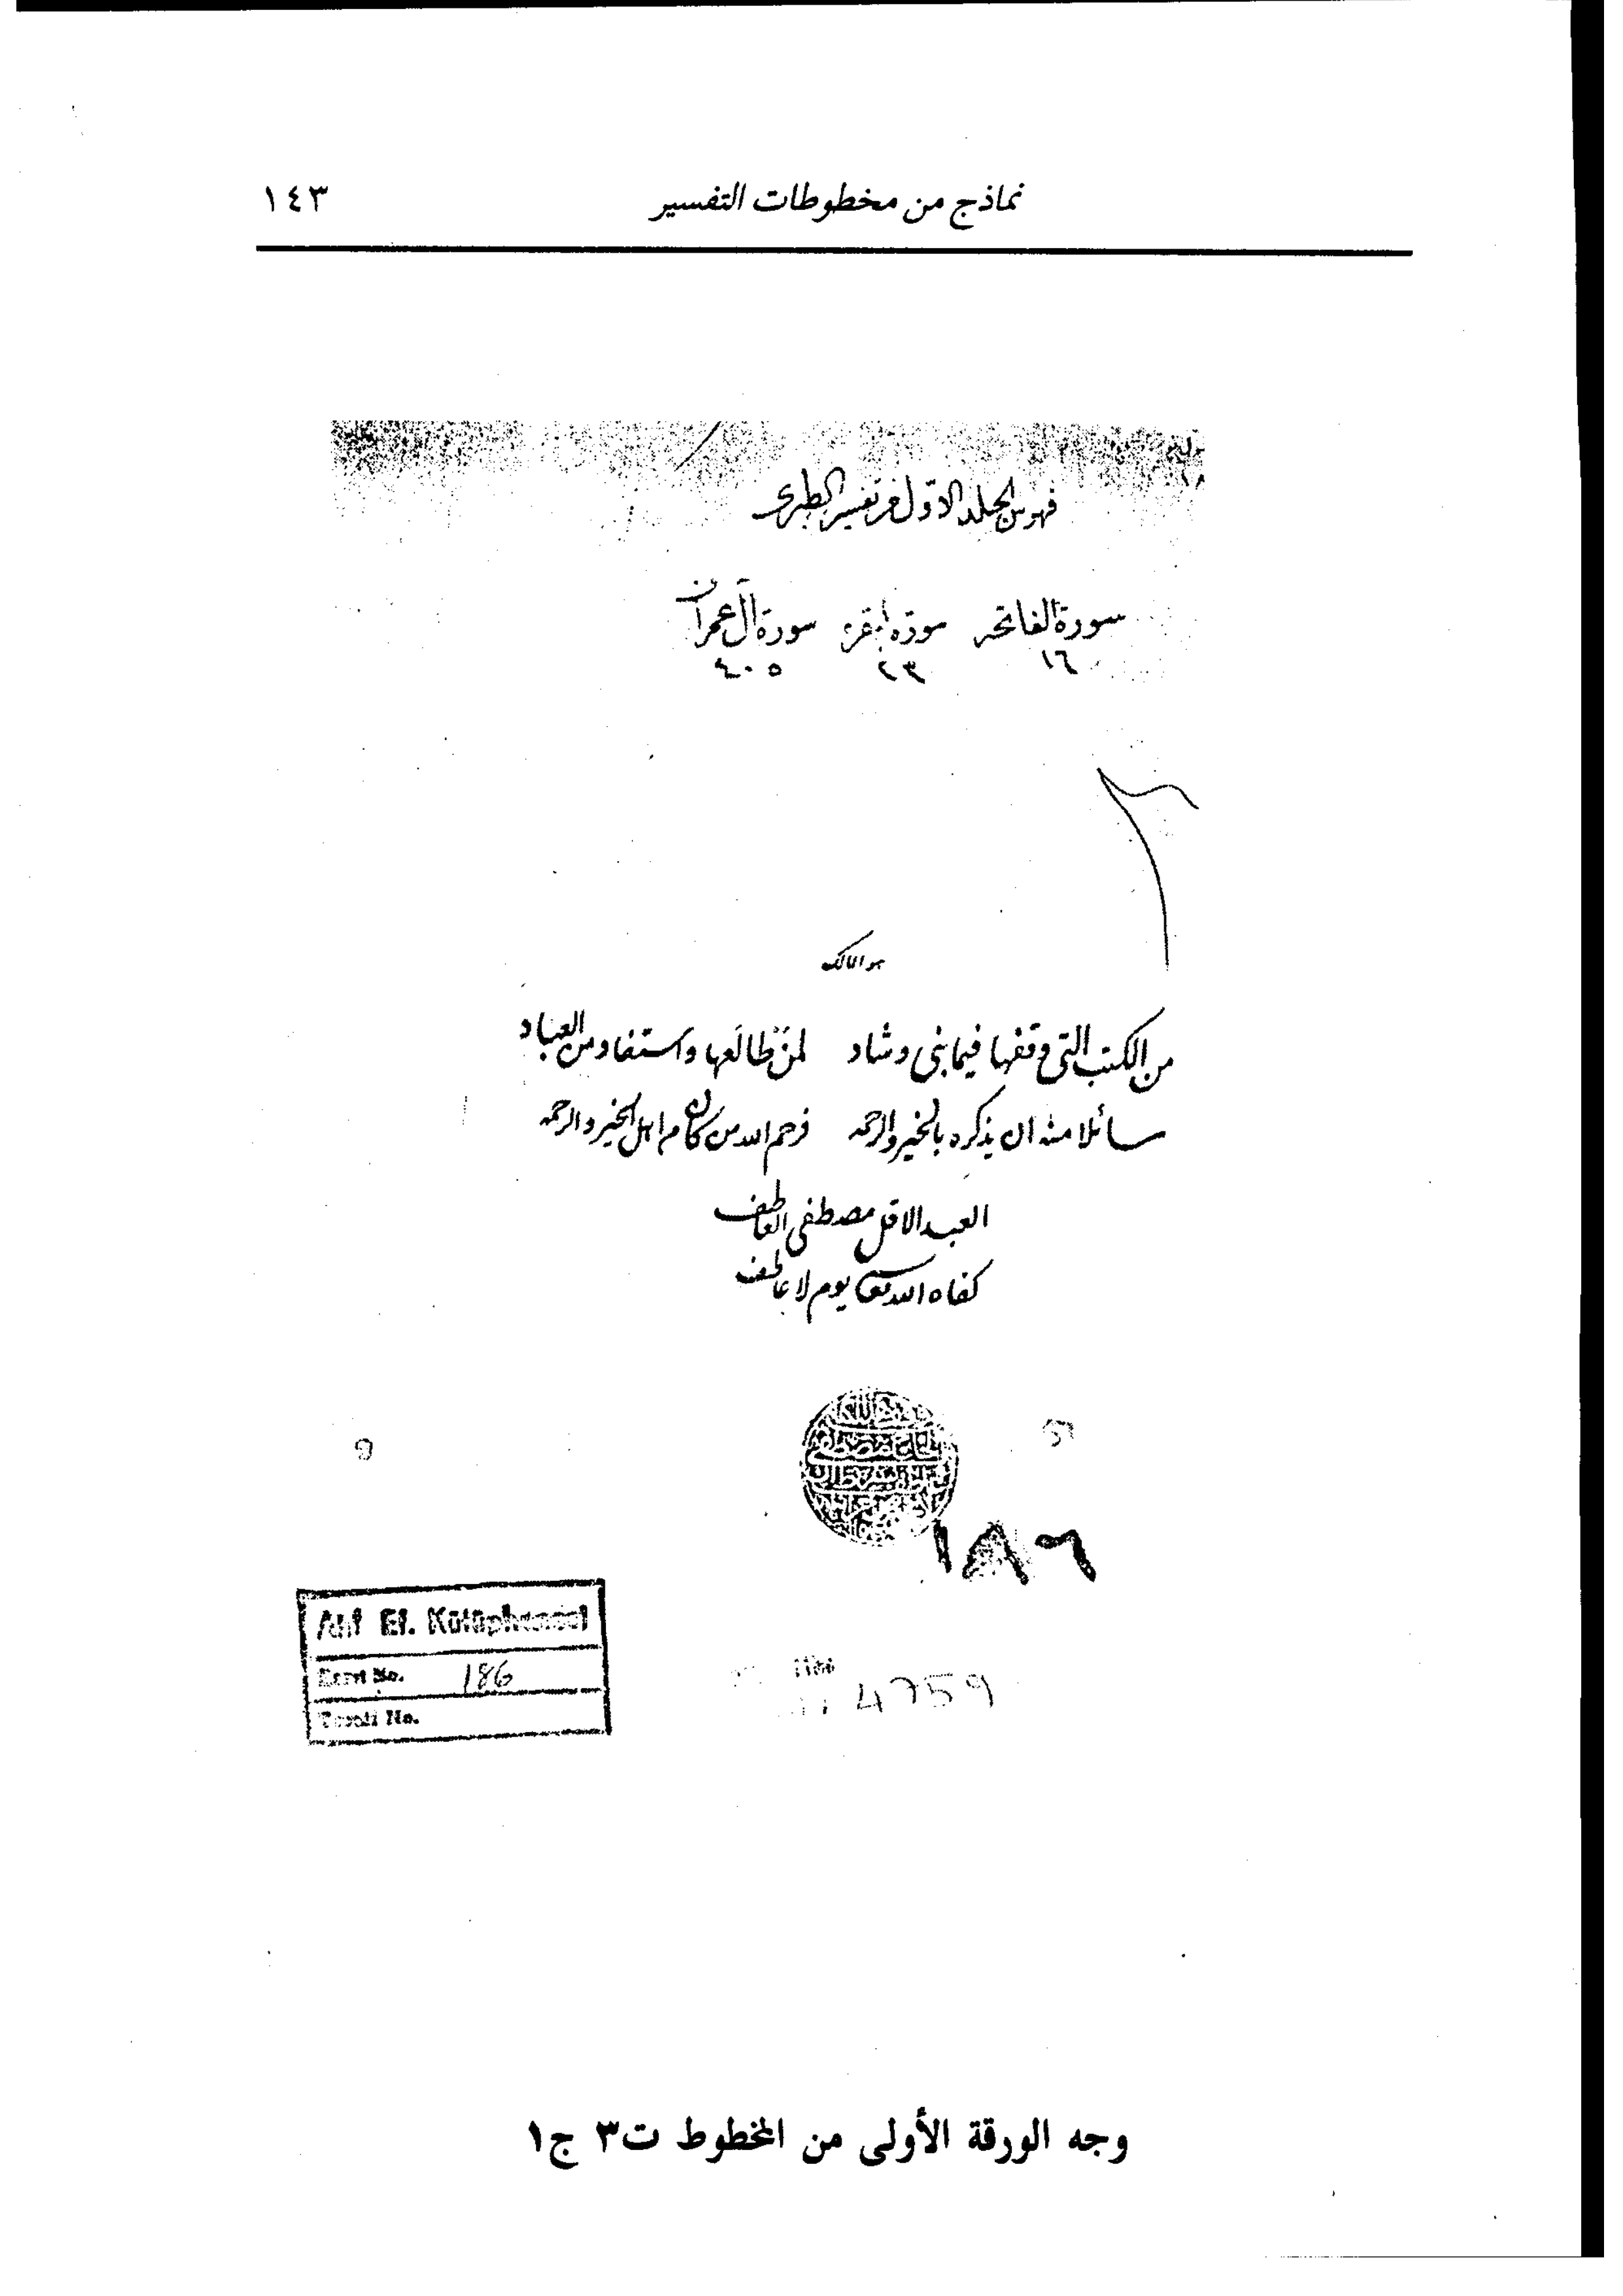 نماذج من مخطوطات التفسير ١٤٣
فهرس الجلد الاول من تفسير الطبرى
سورة الفاتحه سورة البقره سورة آل عمران
١٦ ٢٣ ٤٠٥
هو المالك
من الكتب التى وقفها فيما بنى وشاد لمن طالعها واستفاد من العباد
سائلا منه ان يذكره بالخير والرحمه فرحم الله من كان من اهل الخير والرحمه
العبد الاقل مصطفى العاطف
كفاه الله يوم لا عاطف
١٨٦
Atıf Ef. Kütüphanesi
No. 186
No.
4759
وجه الورقة الأولى من المخطوط ت٣ ج١